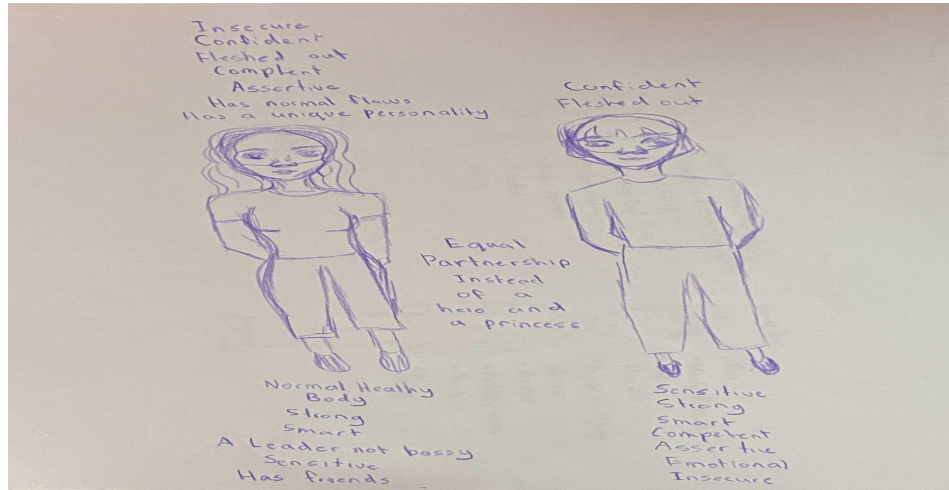 Insecure
Confident
Fleshed out
Complent
Assertive
Has normal flaws
Has a unique personality
Confident
Fleshed out
Equal
Partnership
Instead
of a
hero and
a princess
Normal Heathy
Body
Strong
Smart
A Leader not bossy
Sensitive
Has friends
Sensitive
Strong
Smart
Competent
Assertive
Emotional
Insecure